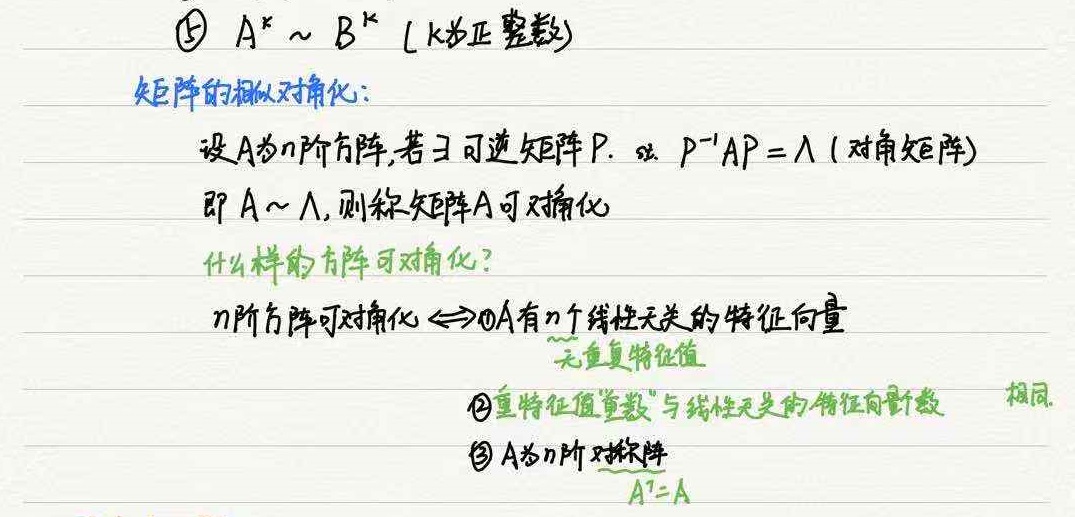 ⑤ A^k ~ B^k (k为正整数)
矩阵的相似对角化:
设A为n阶方阵,若∃可逆矩阵P. st. P⁻¹AP=Λ(对角矩阵)
即 A~Λ,则称矩阵A可对角化
什么样的方阵可对角化?
n阶方阵可对角化⇔①A有n个线性无关的特征向量
无重复特征值
②重特征值"重数"与线性无关的特征向量个数 相同.
③A为n阶对称阵
Aᵀ=A